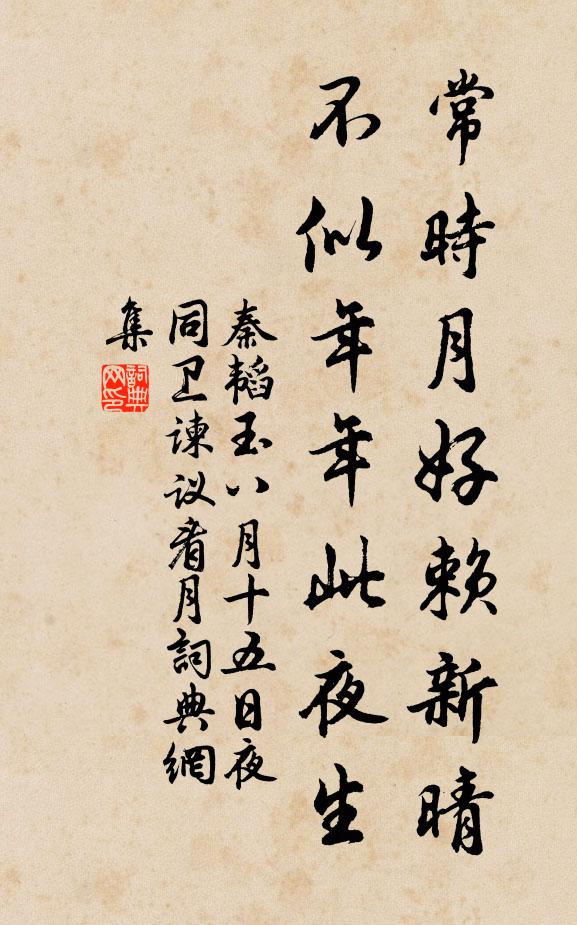 常時月好赖新晴
不似年年此夜生
秦韬玉八月十五日夜
同卫谏议看月詞典網
集
詞典
网印